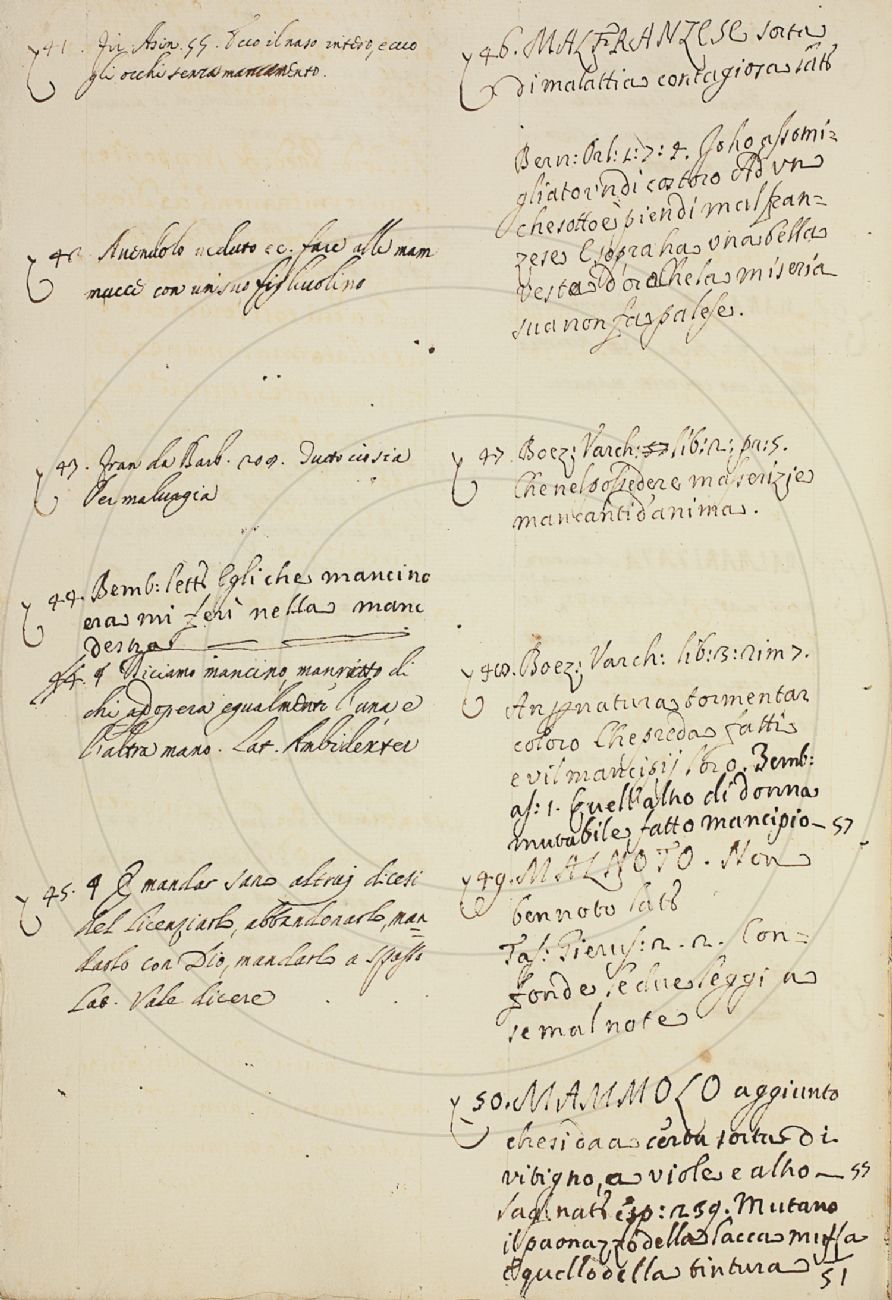 41. Fir. Asin. 55. Ecco il naso intero, ecco
gli occhi senza mancamento.
42. Avendolo veduto ec. fare alle mam
mucce con un suo figliuolino
43. Fran da Barb. 209. Dietro ciò sia
Per malvagia
44. Bemb: lett: Egli che mancino
era mi ferì nella mano
destra
44. ¶ Diciamo mancino, manritto di
chi adopera egualmente l'una e
l'altra mano. Lat. Ambidexter
45. ¶ E mandar sano altrui dicesi
del licenziarlo, abbandonarlo, man=
darlo con Dio, mandarlo a spasso
Lat. Vale dicere
46. MALFRANZESE sorta
di malattia contagiosa latt
Bern: Orl: 1: 7: 4. Io ho assomi=
gliato indi costoro Ad un
che sotto è pien di malfran=
zese E sopra ha una bella
vesta D'oro Che la miseria
sua non fa palese.
47. Boez: Varch: lib: 2: pa: 5.
Che nel possedere maserizie
mancanti d'anima.
48. Boez: Varch: lib: 3: rim 7.
natura tormentar
coloro Che preda fatti
e vil mancipij loro. Bemb:
as: 1. Quell'alho di donna
mutabile fatto mancipio — 57
49. MALNOTO. Non
ben noto latt
Tas: Gierus: 2. 2. Con=
fonde le due leggi a
se mal note
50. MAMMOLO aggiunto
che si da a certa sorta di
vitigno, a viole e alho — 55
sag: natt esp: 259. Mutano
il paonazzo della lacca muffa
e quello della tintura 51